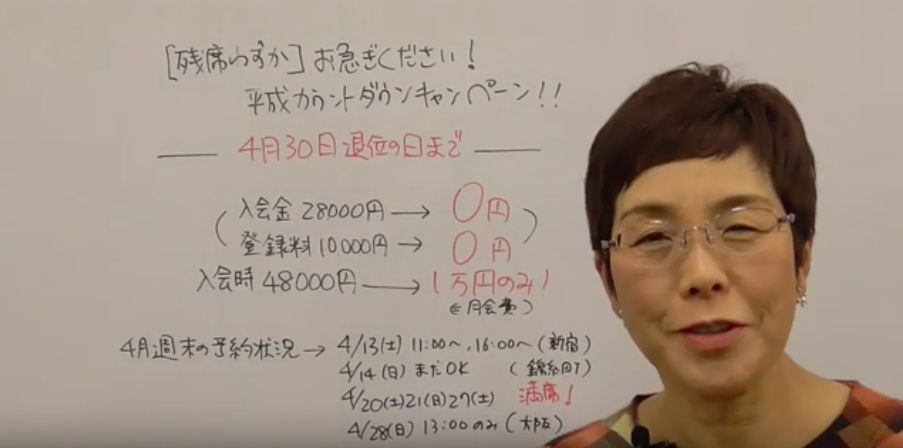 [残席わずか]お急ぎください！
平成カウントダウンキャンペーン!!
4月30日退位の日まで
(入会金 28000円→0円)
(登録料 10000円→0円)
入会時 48000円→1万円のみ!
(=月会費)
4月週末の予約状況→4/13(土) 11:00~,16:00~(新宿)
4/14(日) まだOK (錦糸町)
4/20(土)21(日)27(土) 満席!
4/28(日) 13:00のみ(大阪)